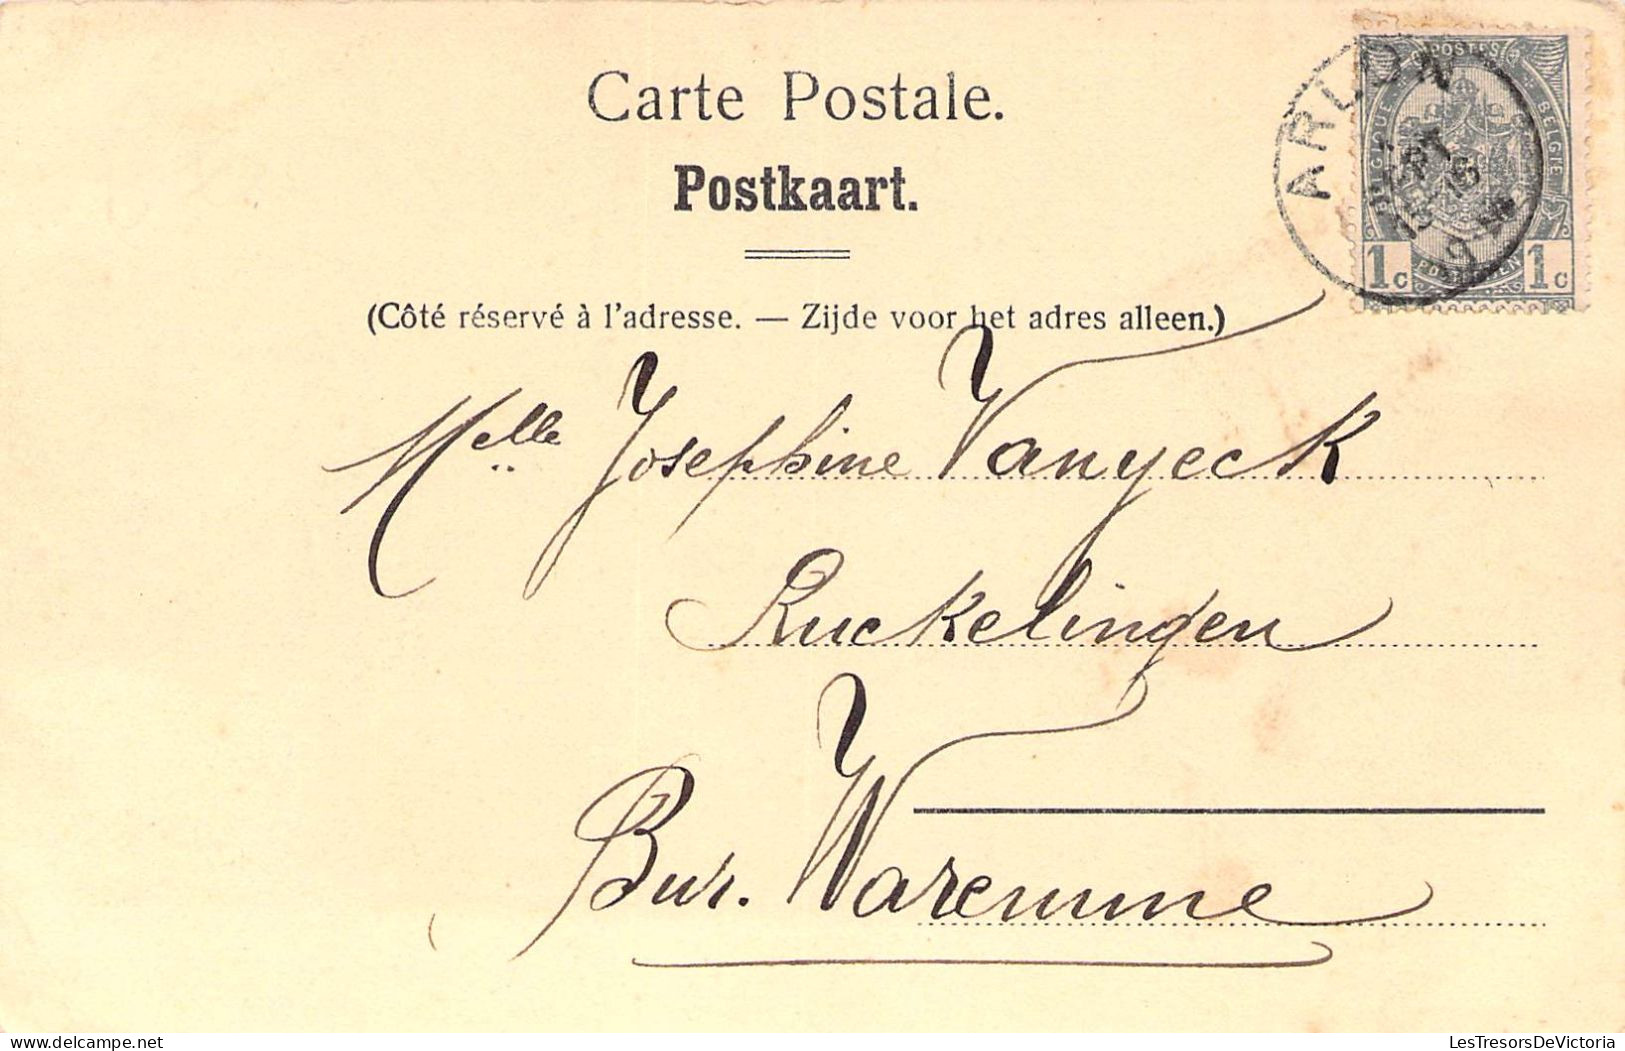 Carte Postale.
Postkaart.
(Côté réservé à l'adresse. — Zijde voor het adres alleen.)
POSTES
BELGIQUE
BELGIE
POSTERIJEN
1c 1c
ARLON
Melle Josephine Vanyeck
Ruckelingen
Bur. Waremme
LesTresorsDeVictoria